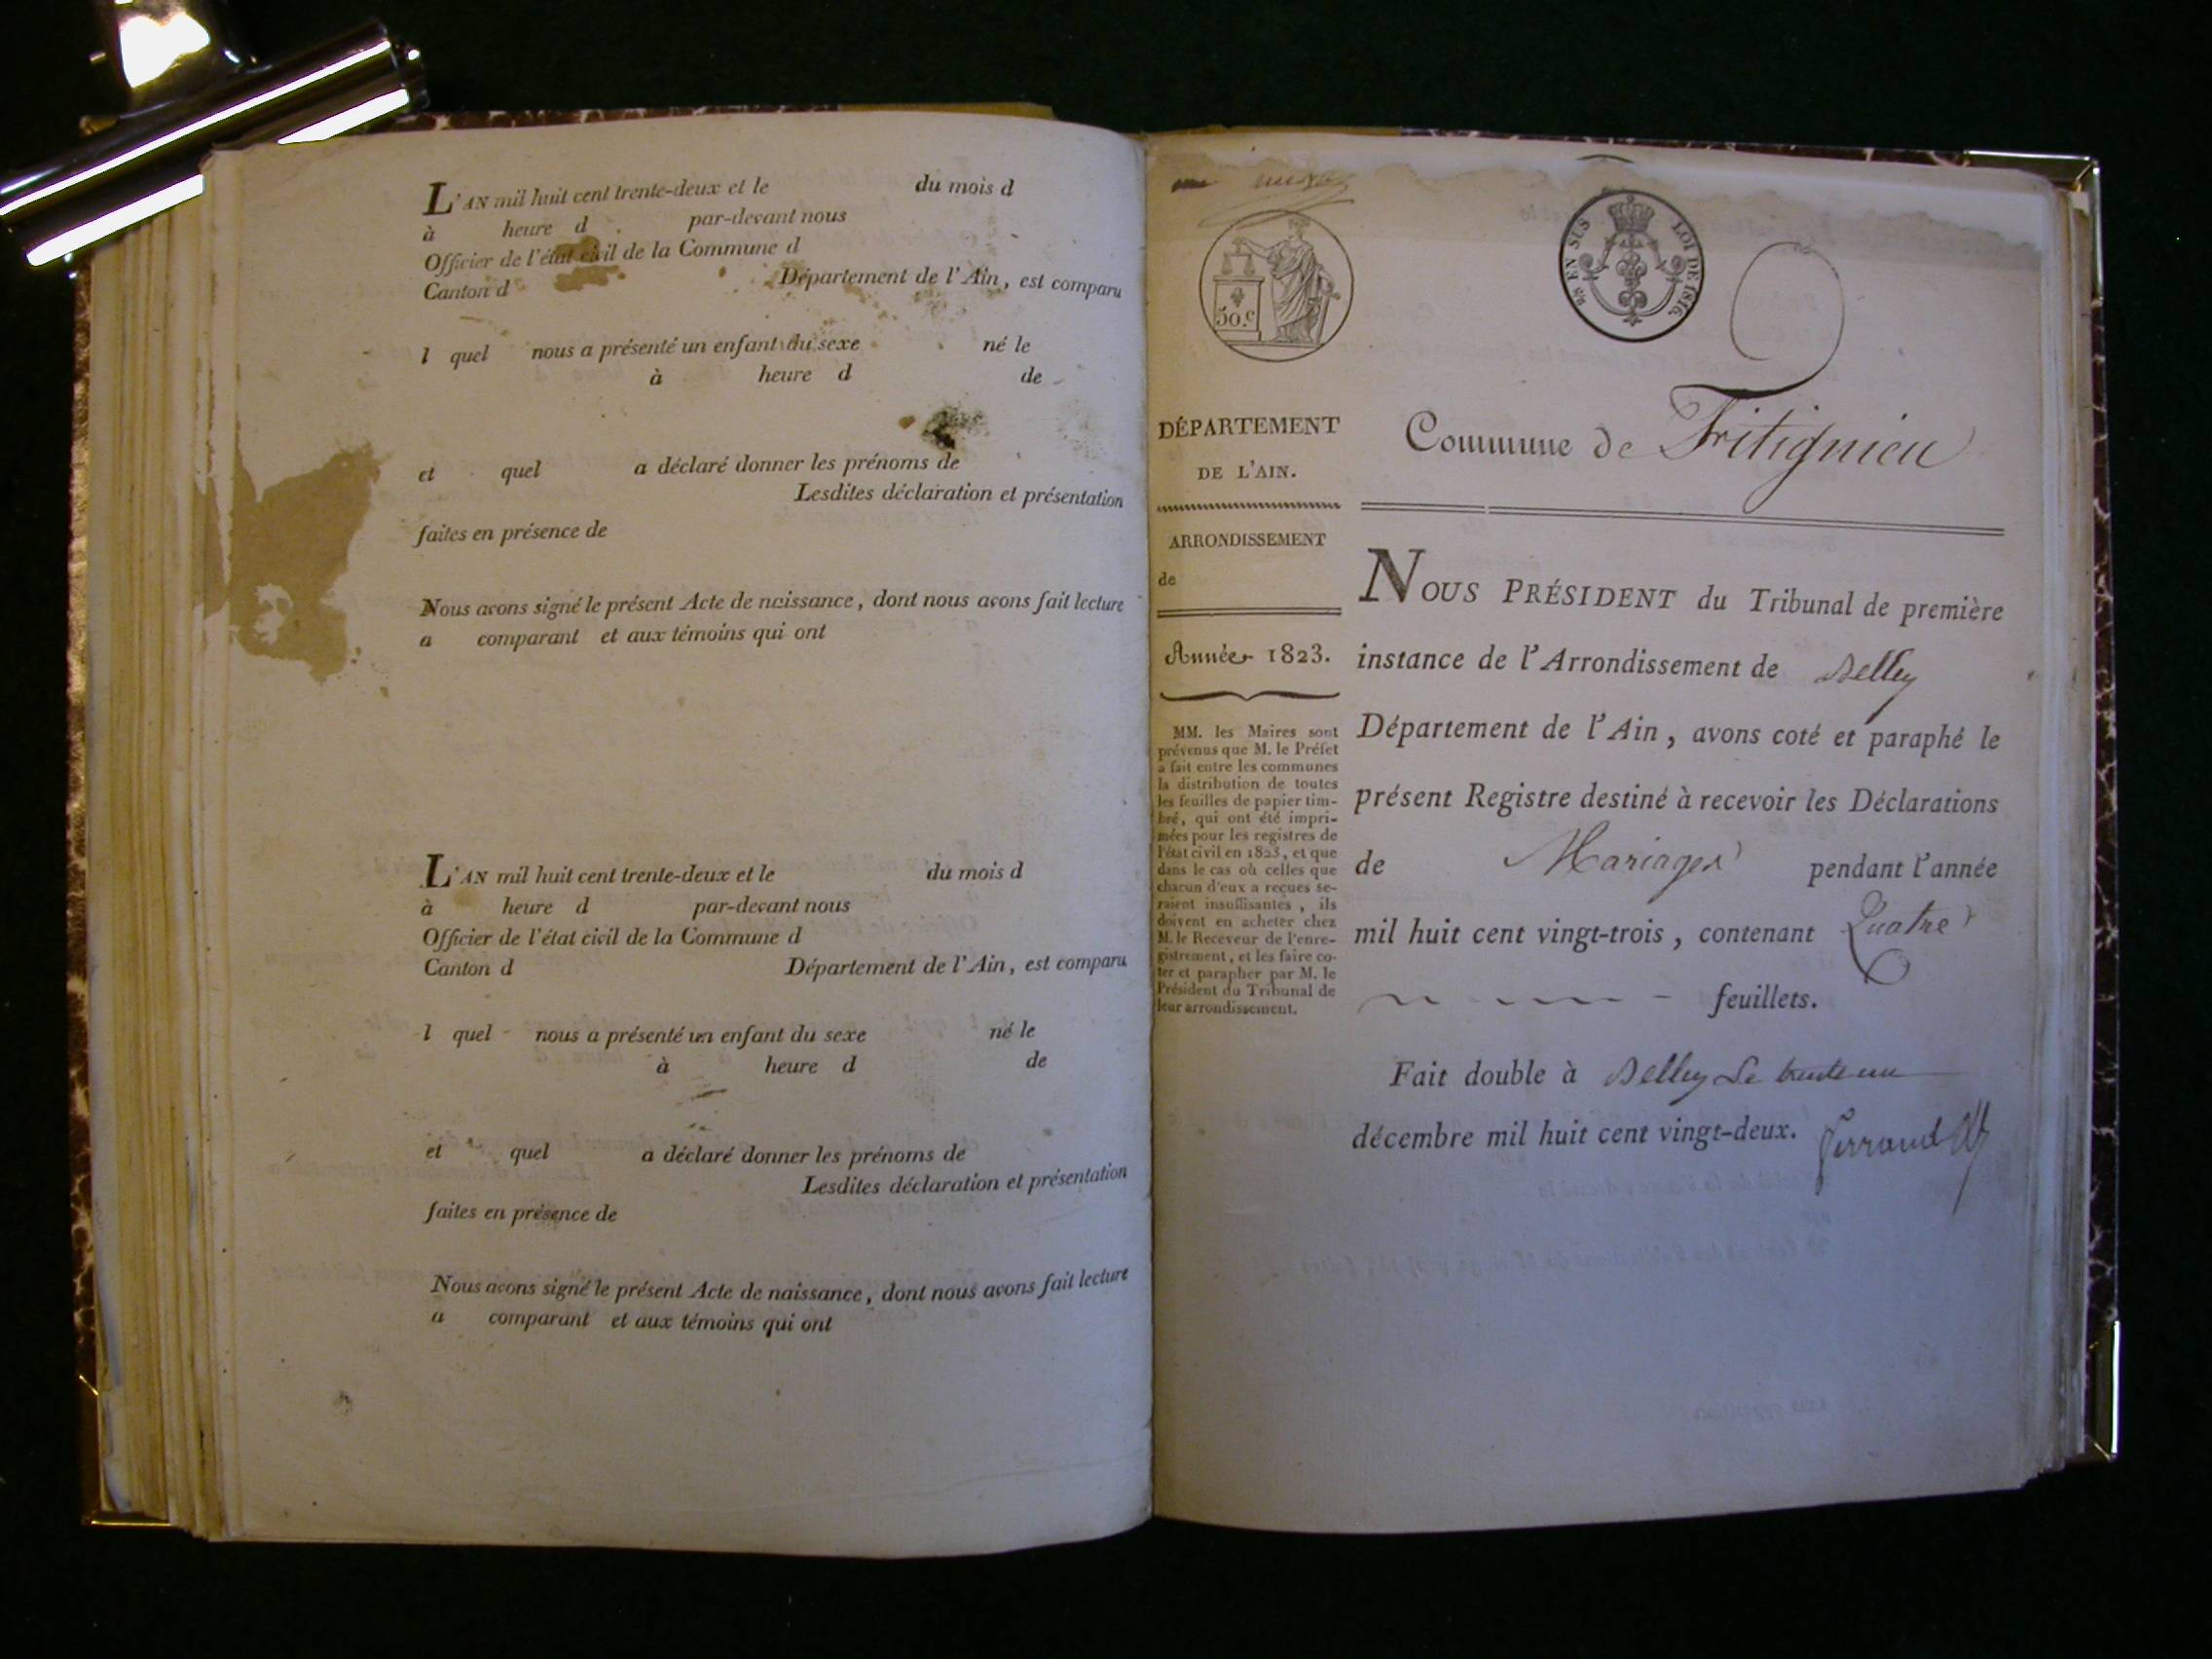 L'AN mil huit cent trente-deux et le du mois d
à heure d par-devant nous
Officier de l'état civil de la Commune d
Canton d Département de l'Ain, est comparu
l quel nous a présenté un enfant du sexe né le
à heure d de
et quel a déclaré donner les prénoms de
Lesdites déclaration et présentation
faites en présence de
Nous avons signé le présent Acte de naissance, dont nous avons fait lecture
a comparant et aux témoins qui ont
L'AN mil huit cent trente-deux et le du mois d
à heure d par-devant nous
Officier de l'état civil de la Commune d
Canton d Département de l'Ain, est comparu
l quel nous a présenté un enfant du sexe né le
à heure d de
et quel a déclaré donner les prénoms de
Lesdites déclaration et présentation
faites en présence de
Nous avons signé le présent Acte de naissance, dont nous avons fait lecture
a comparant et aux témoins qui ont
50.c
EN SUS LOI DE 1816.
DÉPARTEMENT
DE L'AIN.
ARRONDISSEMENT
de
Année 1823.
MM. les Maires sont
prévenus que M. le Préfet
a fait entre les communes
la distribution de toutes
les feuilles de papier tim-
bré, qui ont été impri-
mées pour les registres de
l'état civil en 1823, et que
dans le cas où celles que
chacun d'eux a reçues se-
raient insuffisantes, ils
doivent en acheter chez
M. le Receveur de l'enre-
gistrement, et les faire co-
ter et parapher par M. le
Président du Tribunal de
leur arrondissement.
Commune de Fitignieu
NOUS PRÉSIDENT du Tribunal de première
instance de l'Arrondissement de Belley
Département de l'Ain, avons coté et paraphé le
présent Registre destiné à recevoir les Déclarations
de Mariages pendant l'année
mil huit cent vingt-trois, contenant Quatre
feuillets.
Fait double à Belley Le trente un
décembre mil huit cent vingt-deux.